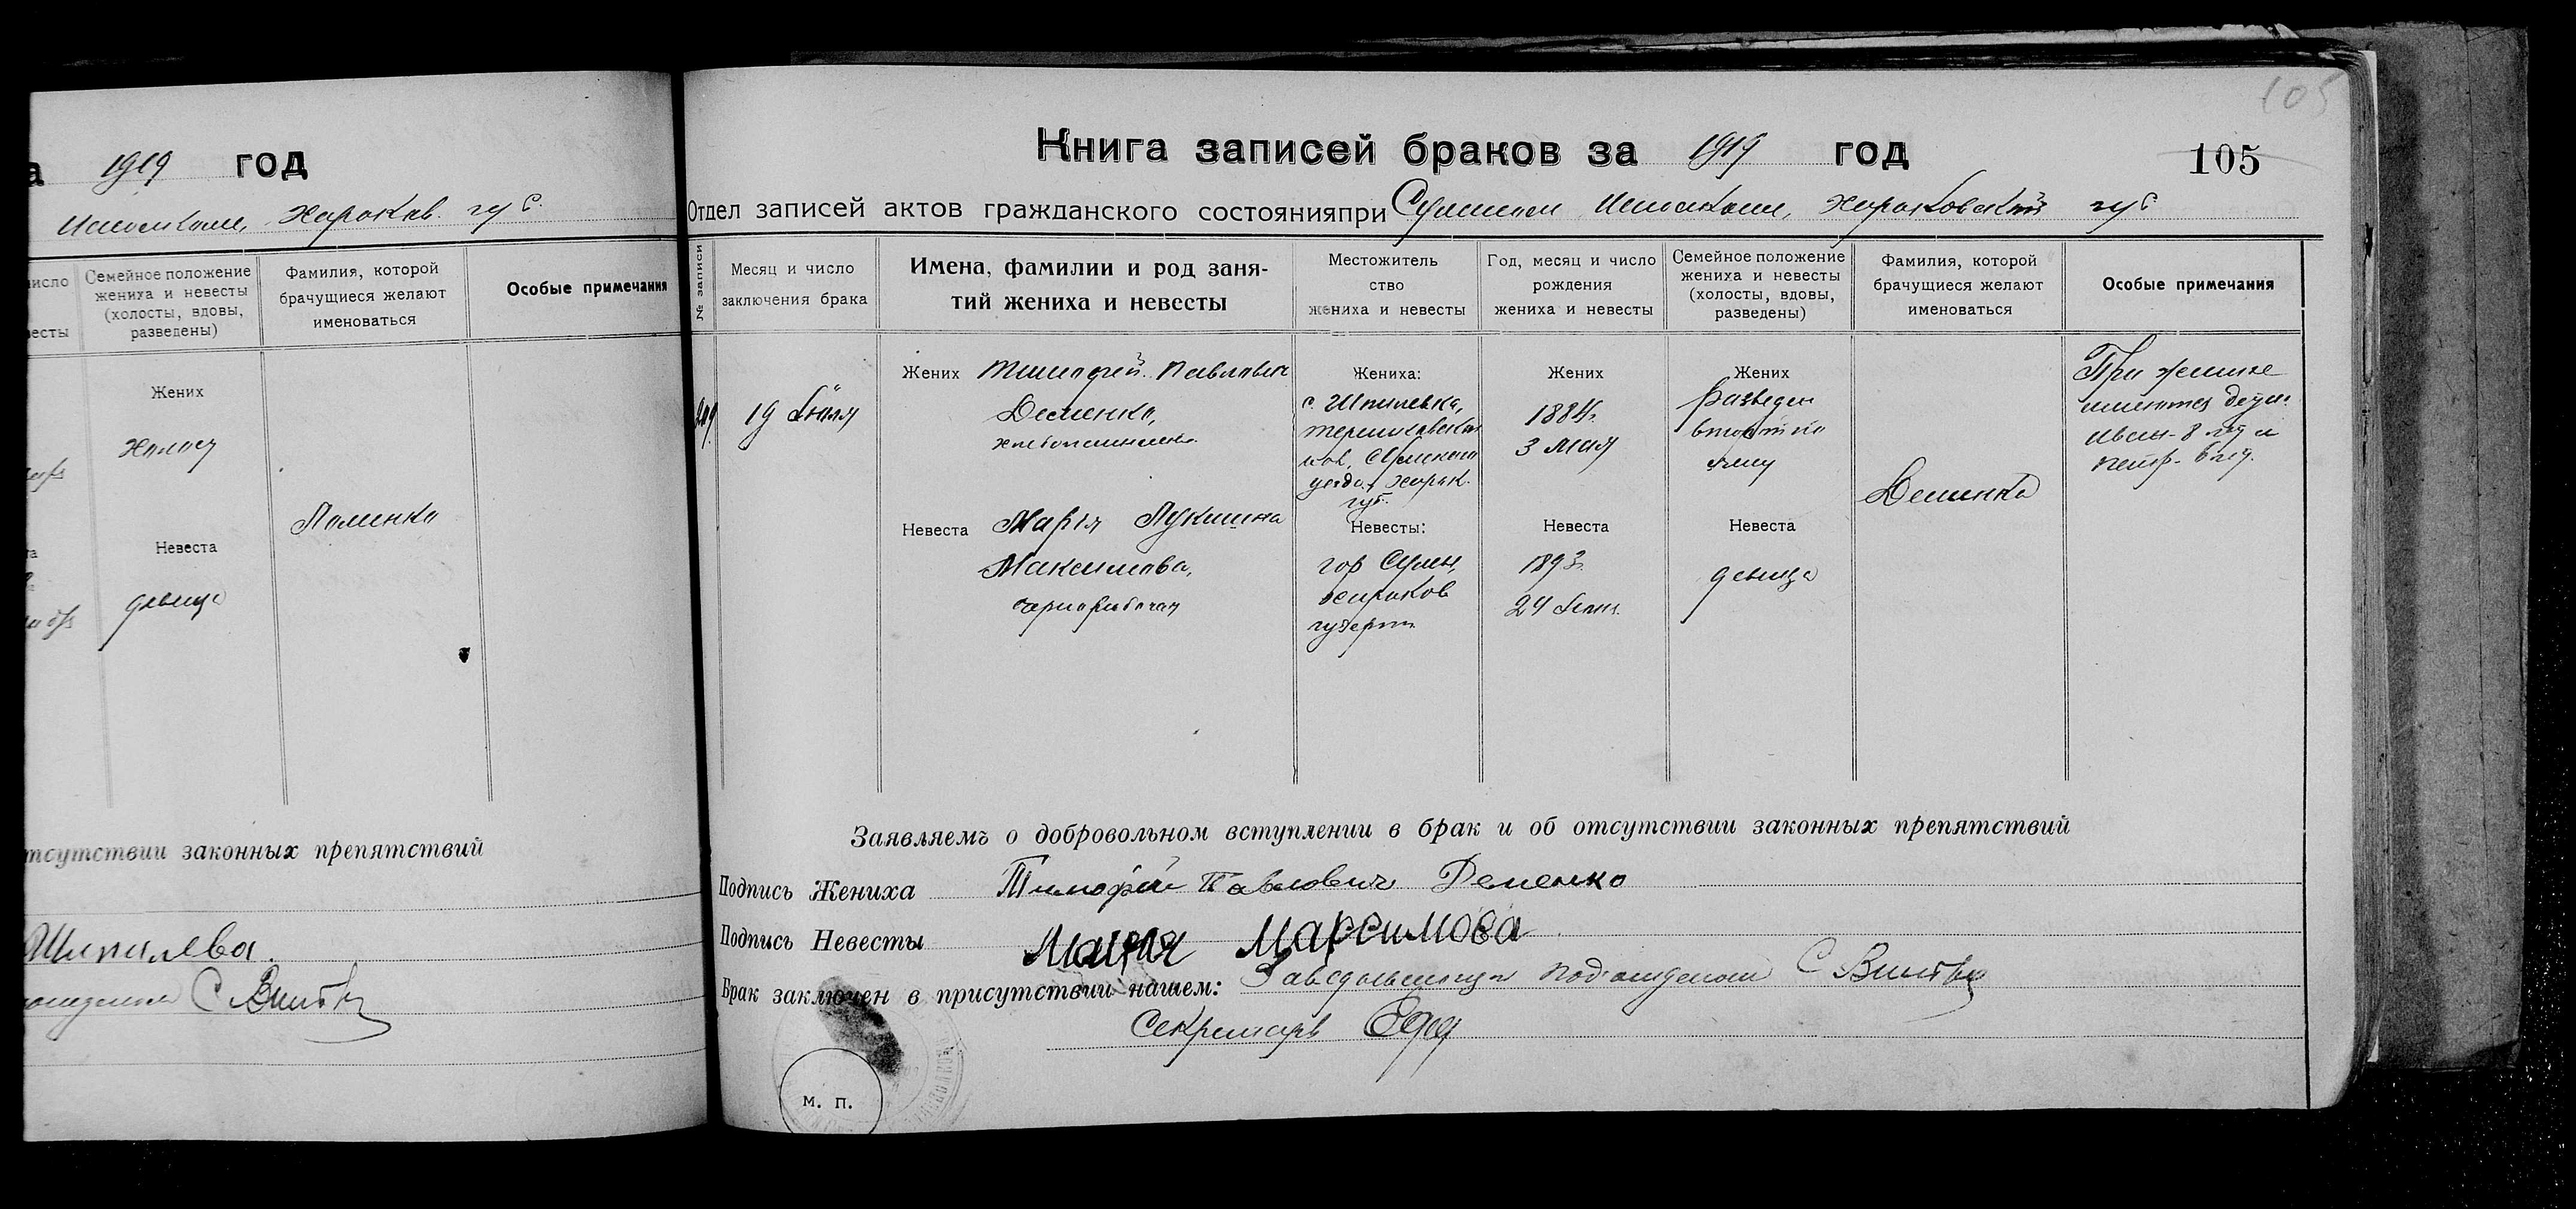 1919 год
Исполкоме, Харьков. губ.
Семейное положение
жениха и невесты
(холосты, вдовы,
разведены)
Фамилия, которой
брачущиеся желают
именоваться
Особые примечания
Жених
холост
Невеста
девица
отсутствии законных препятствий
Шипилева.
105
Книга записей браков за 1919 год
105
Отдел записей актов гражданского состояния при Сумском Исполкоме, Харьковской губ
№ записи
Месяц и число
заключения брака
Имена, фамилии и род заня-
тий жениха и невесты
Местожитель
ство
жениха и невесты
Год, месяц и число
рождения
жениха и невесты
Семейное положение
жениха и невесты
(холосты, вдовы,
разведены)
Фамилия, которой
брачущиеся желают
именоваться
Особые примечания
19
Жених Тимофей Павлович
Деменко,
Жениха:
с. Шпилевка,
вол. Сумского
уезда, Харьк.
губ.
Жених
1884г.
3 мая
Жених
Разведен
Деменко
При женихе
имеются дети:
Невеста Мария Лукишна
Максимова,
чернорабочая
Невесты:
гор Сумы,
Харьков
губерни
Невеста
1893г.
24
Невеста
девица
Заявляемъ о добровольном вступлении в брак и об отсутствии законных препятствий
Подпись Жениха Тимофей Павлович Деменко
Подпись Невесты Мария Максимова
Брак заключен в присутствии нашем: Заведывающи подотделом
Секретарь
м. п.